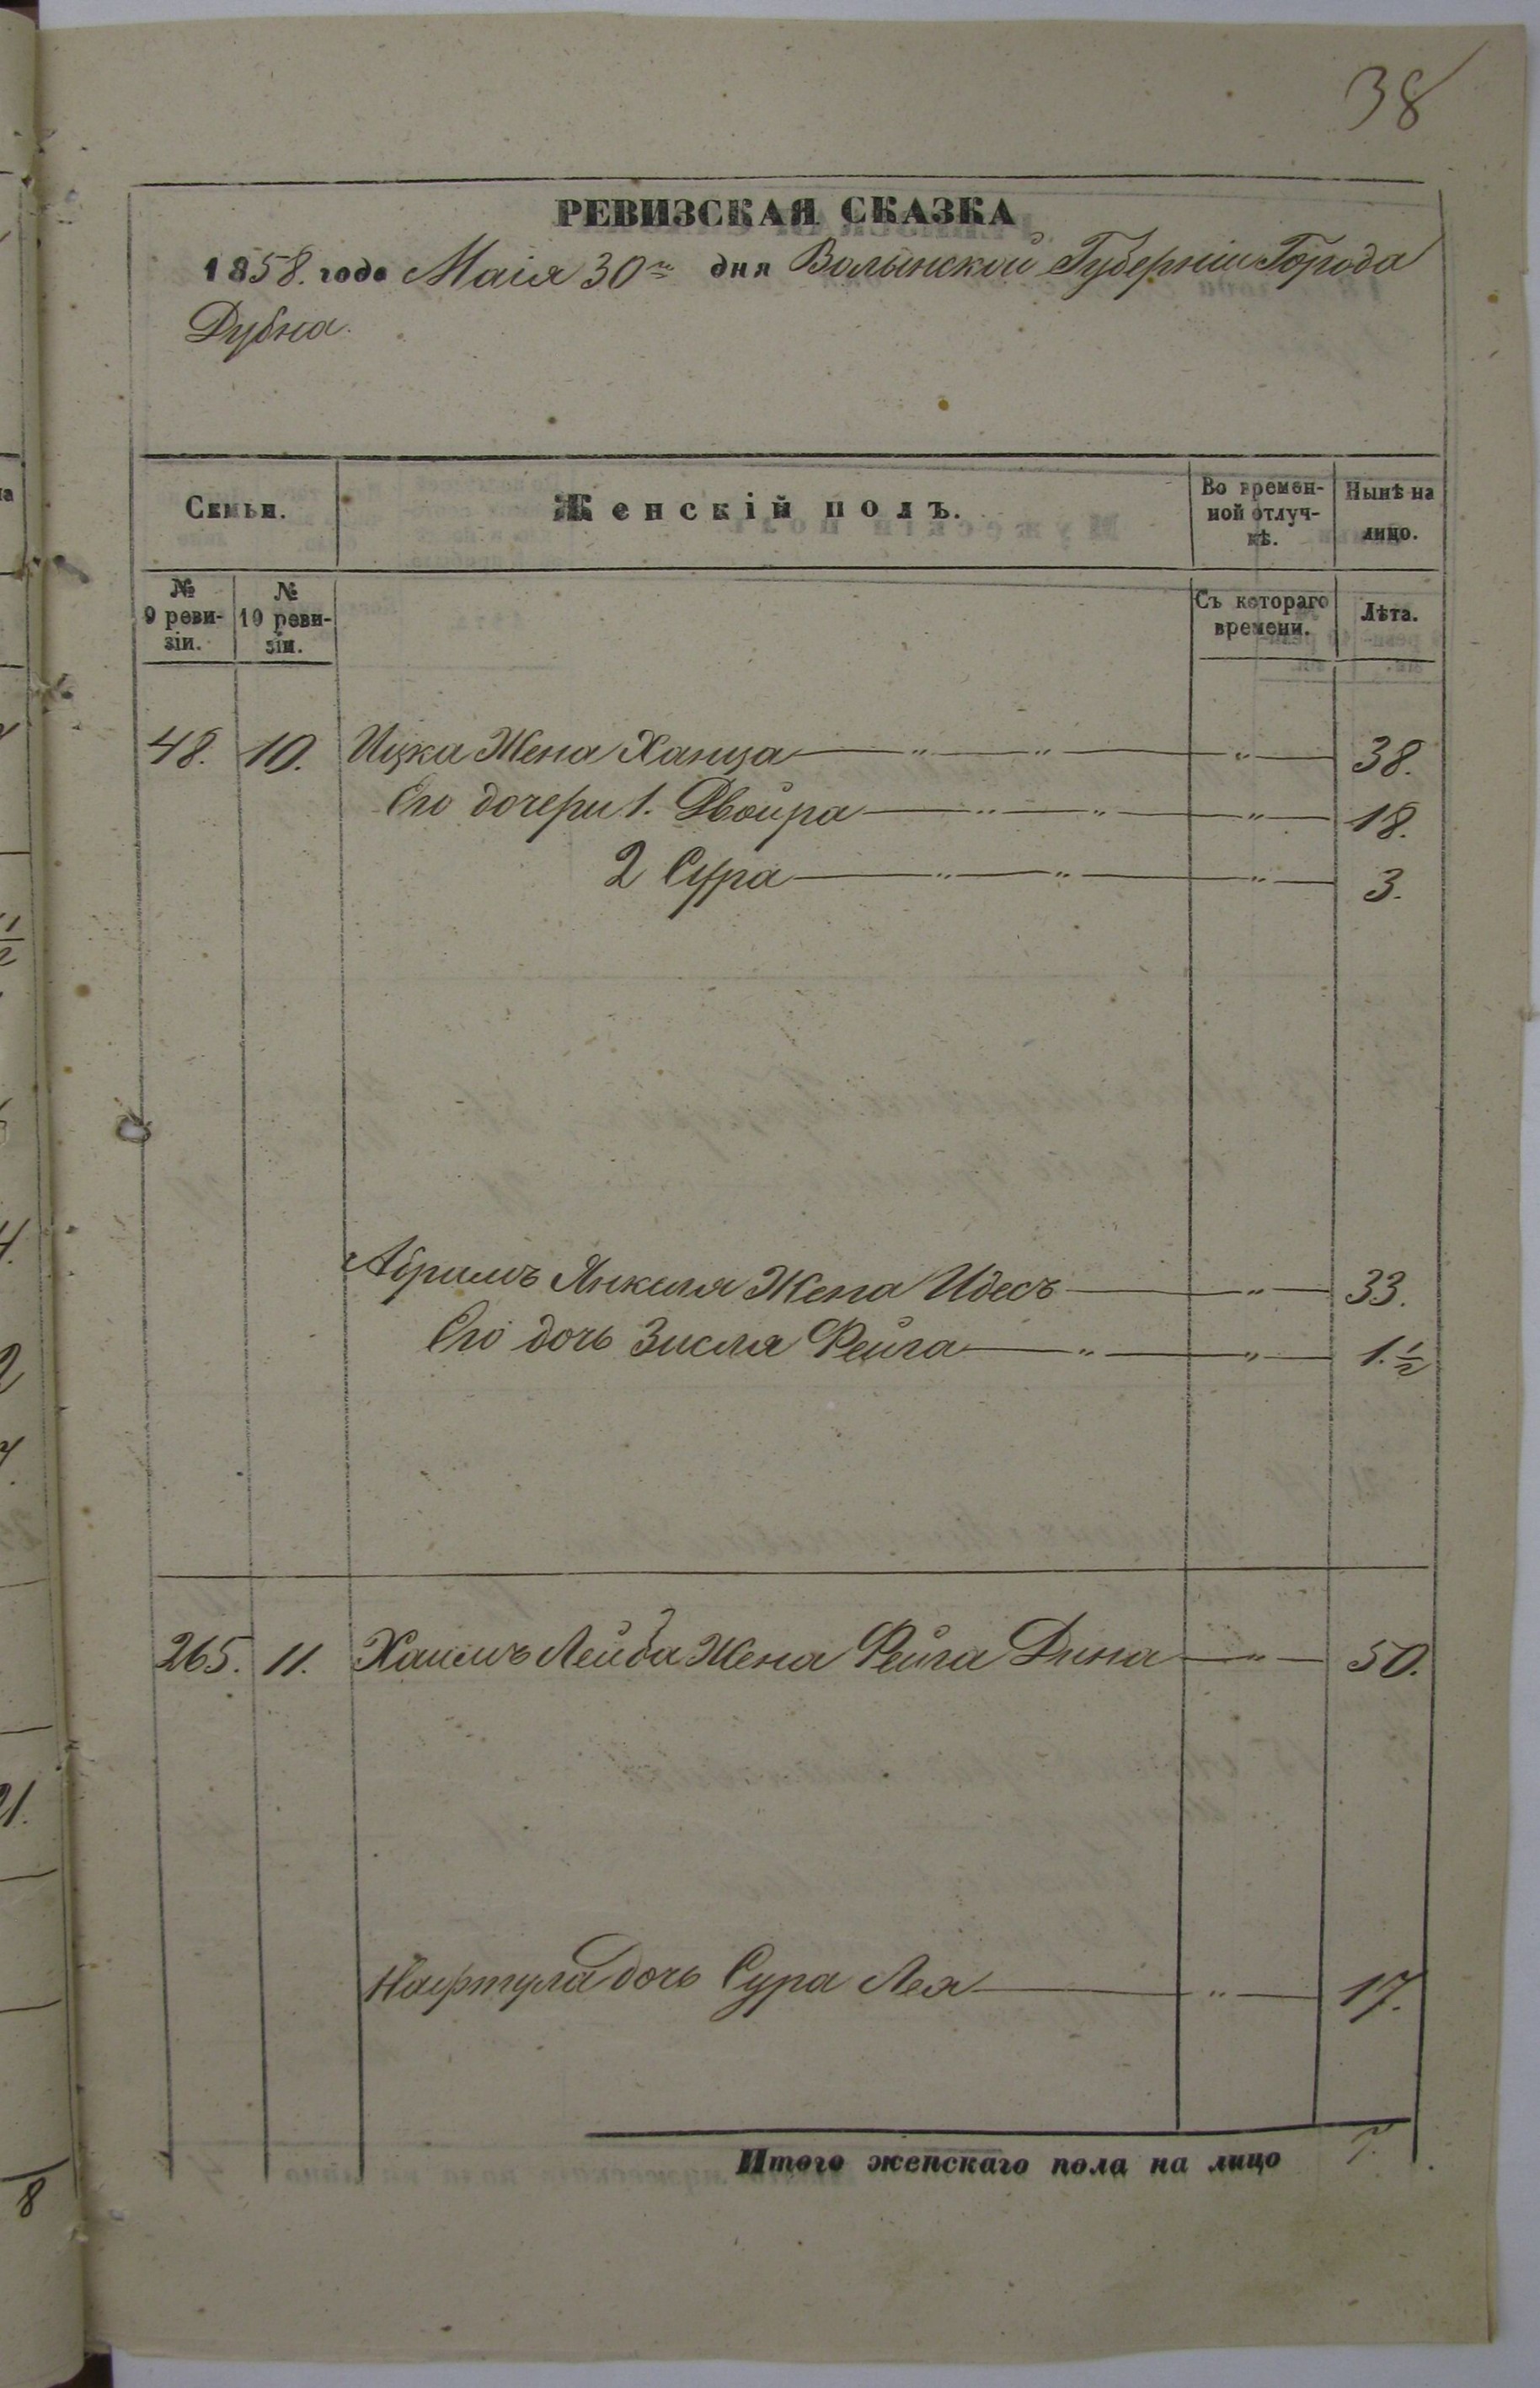 38
РЕВИЗСКАЯ СКАЗКА
1858. года Маія 30го дня Волынской Губерніи Города
Дубна.
Семьи.
Женскій полъ.
Во времен-
ной отлуч-
кѣ.
Нынѣ на
лицо.
№
9 реви-
зіи.
№
10 реви-
зіи.
Съ котораго
времени.
Лѣта.
48. 10. Ицка Жена Ханца — " — " — " — 38.
Его дочери 1. Двойра — " — " — " — 18.
2 Сура — " — " — " — 3.
Абрамъ Янкеля Жена Идесъ — " — 33.
Его дочь Зисля Фейга — " — " — 1.½
265. 11. Хаимъ Лейба Жена Фейга Дина — " — 50.
Нафтула дочь Сура Лея — " — 17.
Итого женскаго пола на лицо 7.